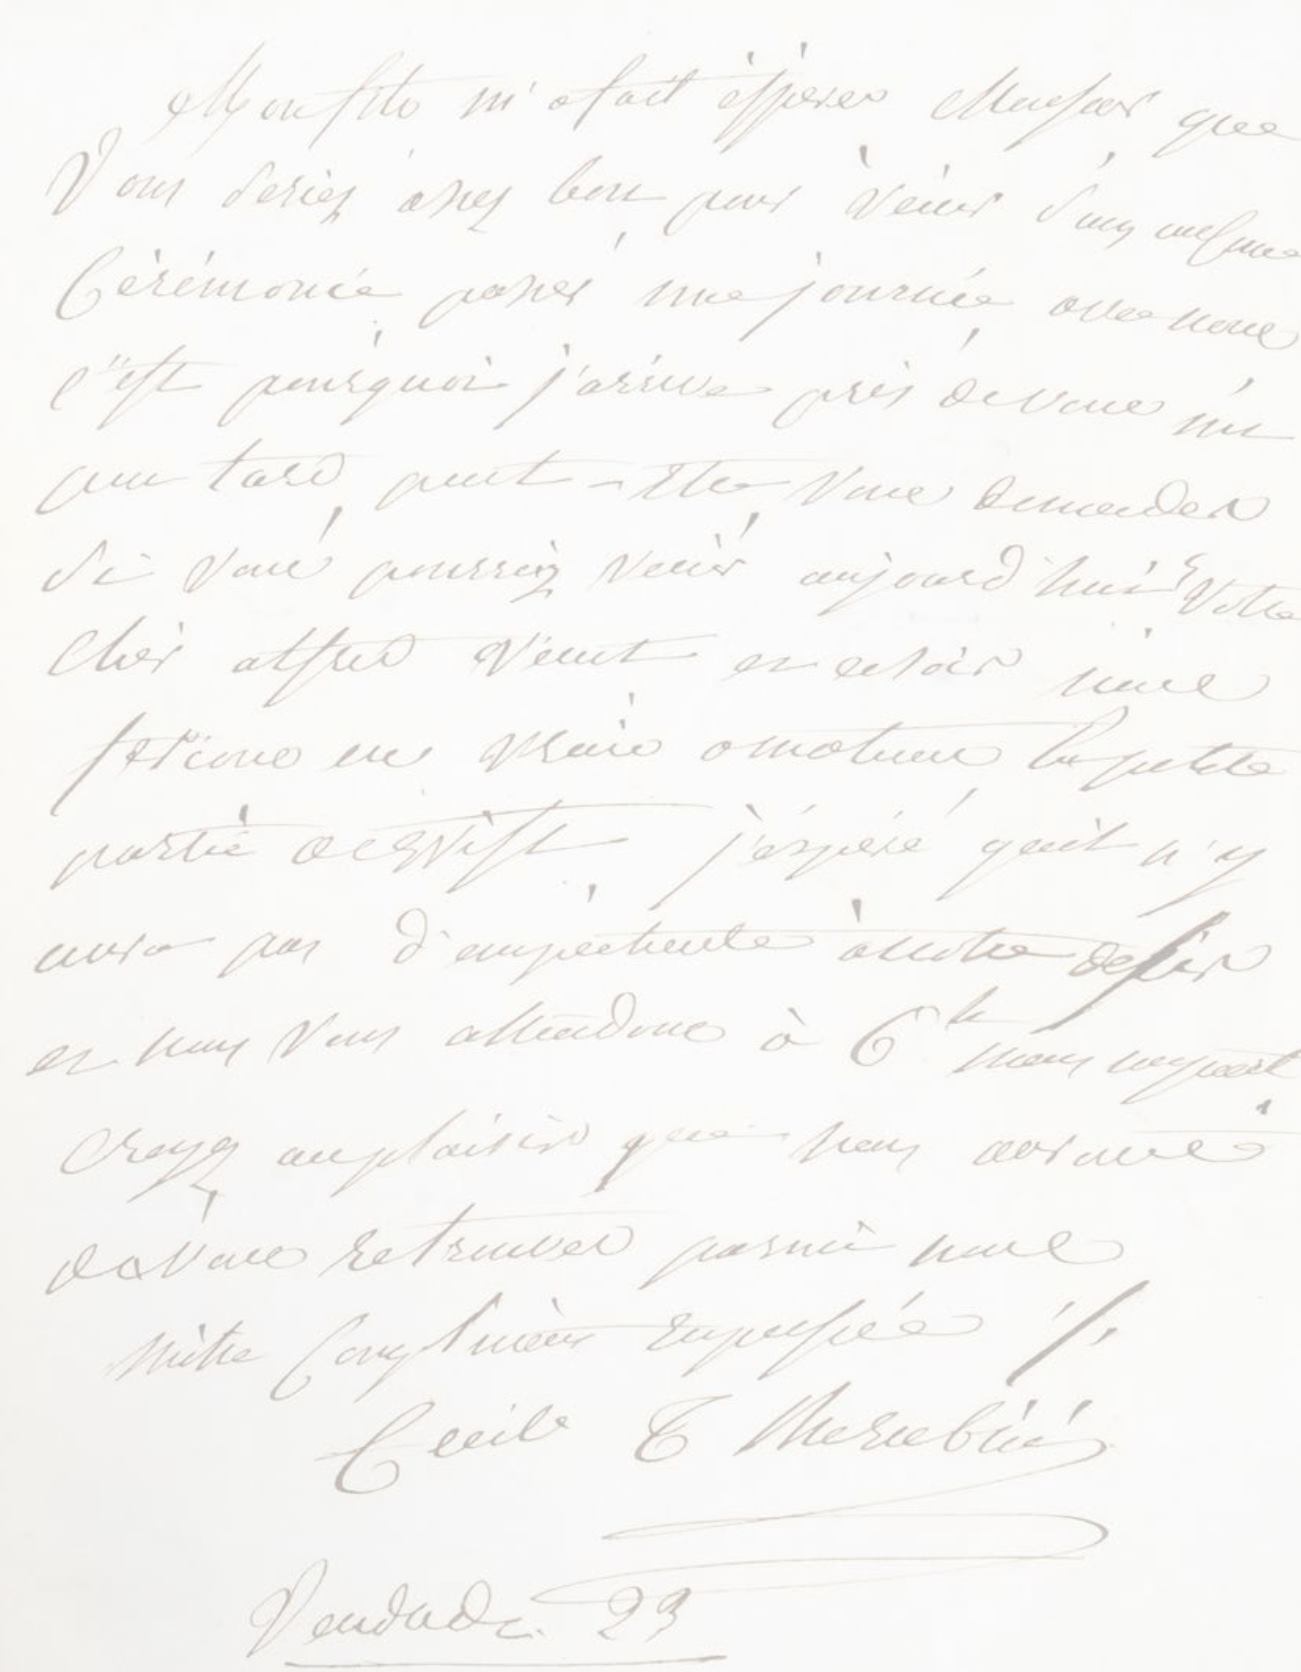 Mon fils m'a fait éspérer Monsieur que
Vous seriez assez bon pour venir sans aucune
Cérémonie passer une journée avec nous
c'est pourquoi j'arrive près de vous un
peu tard peut-être vous demander
si vous pourriez venir aujourd'hui Votre
cher alfred vient ce soir nous
ferons en vrais amateurs la petite
partie de Whist j'éspère qu'il n'y
aura pas d'empêchement à notre desir
et nous vous attendons à 6h
croyez au plaisir que nous aurons
de vous retrouver parmi nous
Mille Complimens
Cecile T
Vendredi 23